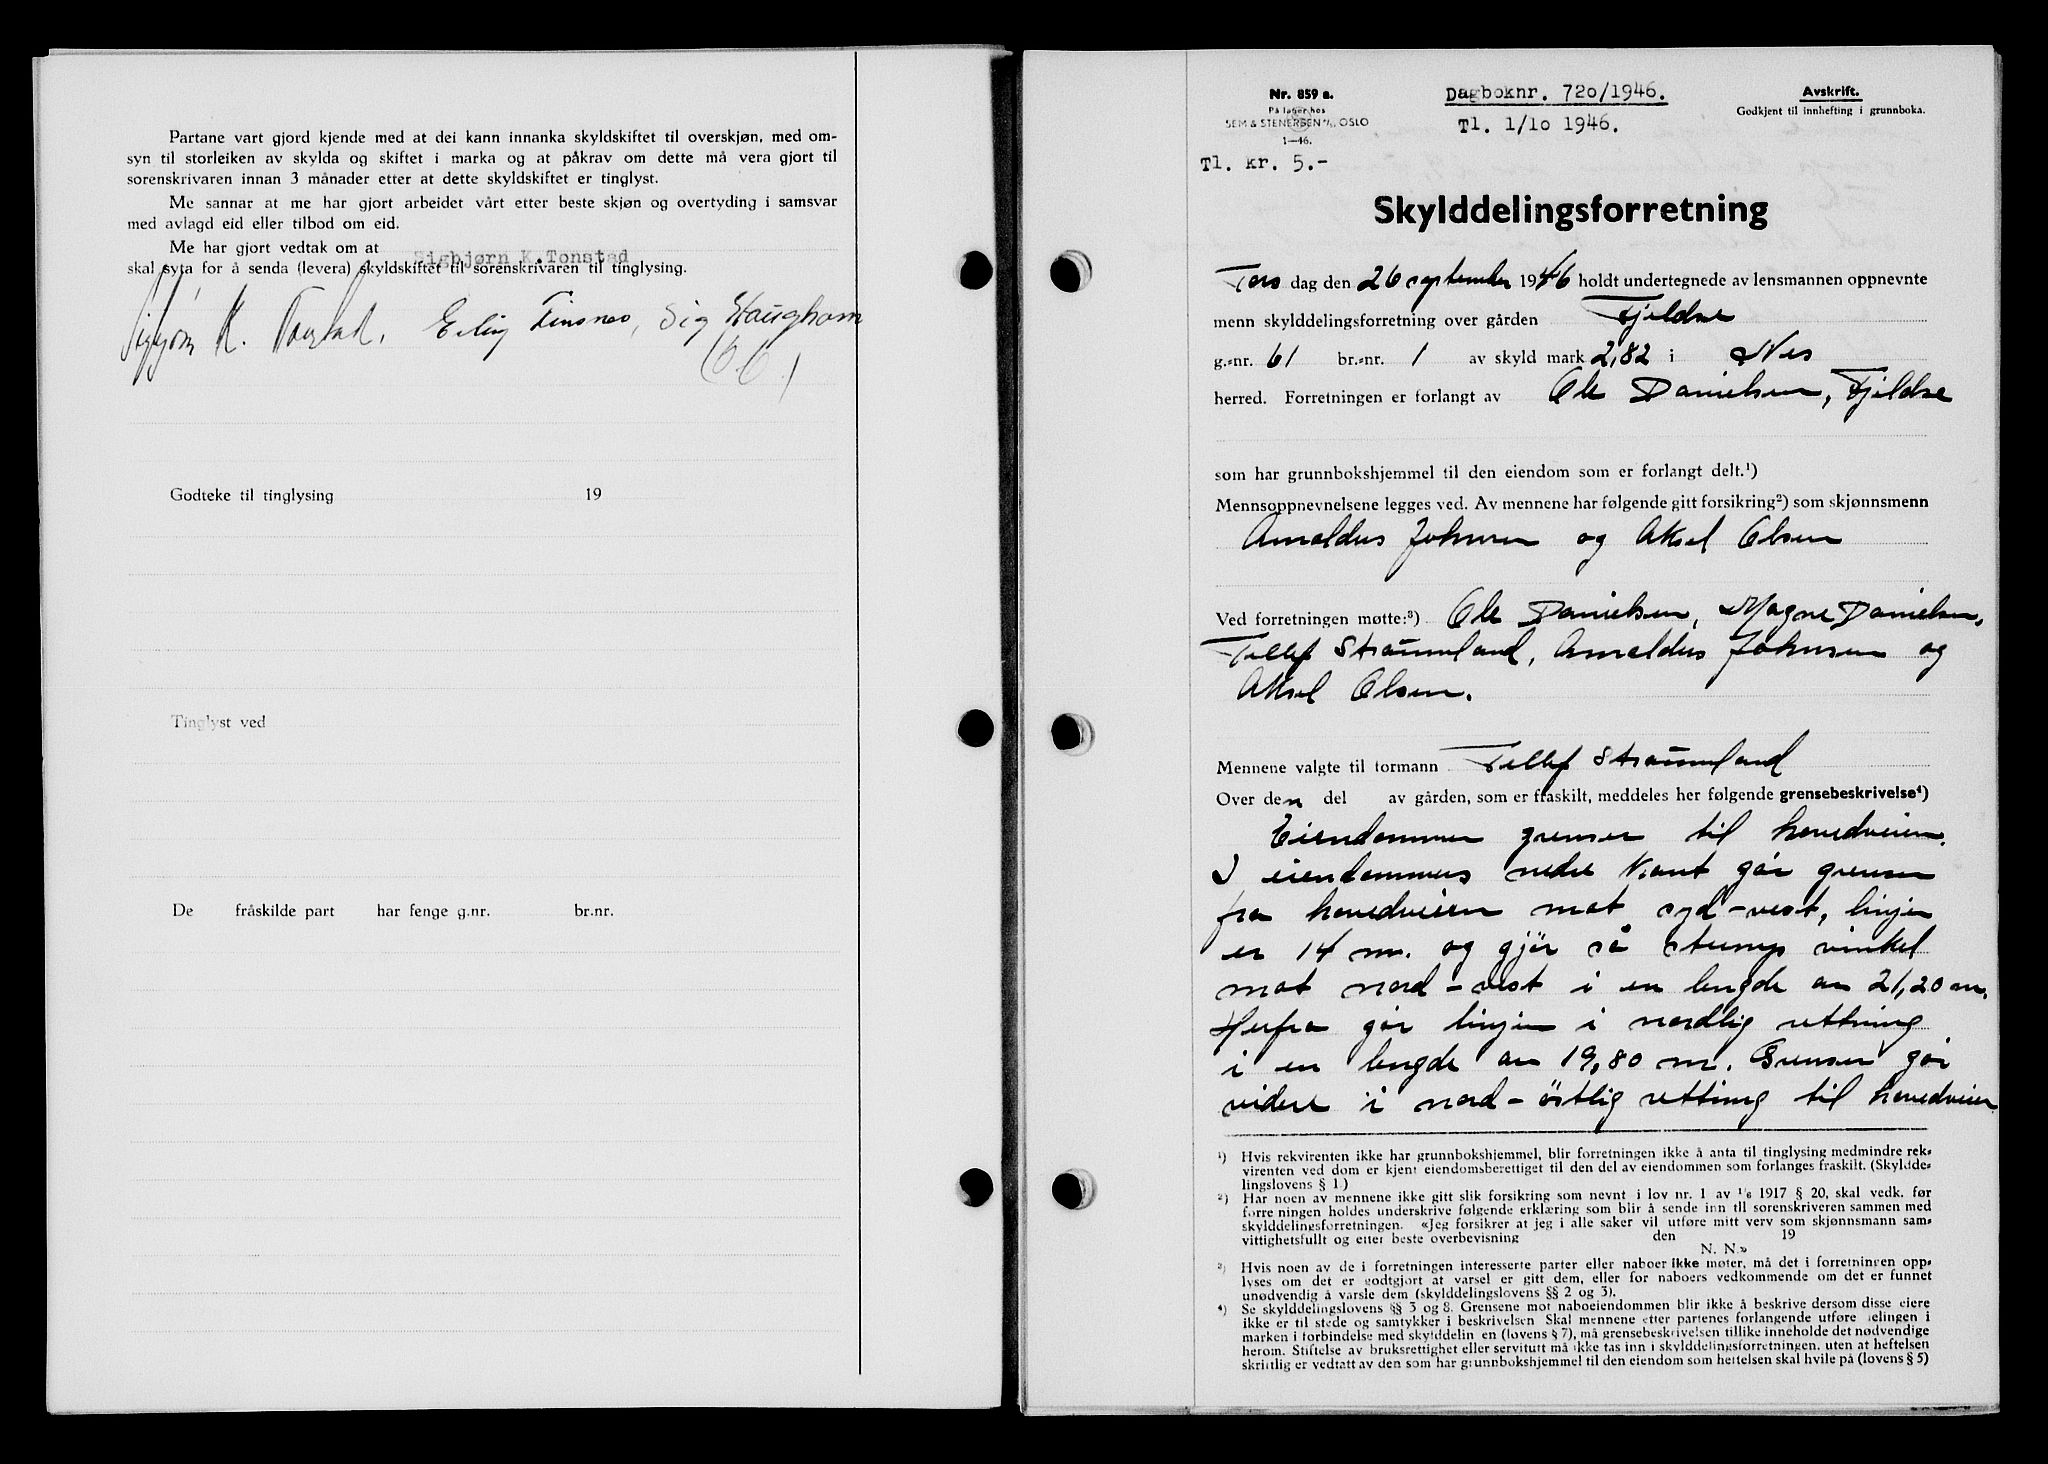 Partane vart gjord kjende med at dei kann innanka skyldskiftet til overskjøn, med om-
syn til storleiken av skylda og skiftet i marka og at påkrav om dette må vera gjort til
sorenskrivaren innan 3 månader etter at dette skyldskiftet er tinglyst.
Me sannar at me har gjort arbeidet vårt etter beste skjøn og overtyding i samsvar
med avlagd eid eller tilbod om eid.
Me har gjort vedtak om at Sigbjørn K. Tonstad
skal syta for å senda (levera) skyldskiftet til sorenskrivaren til tinglysing.
Sigbjørn K. Tonstad. Erling Finsnes, Sig Haughom
Godteke til tinglysing 19
Tinglyst ved
De fråskilde part har fenge g.nr. br.nr.
Nr. 859 a.
På lager hos
SEM & STENERSEN A/S, OSLO
1—46.
Dagboknr. 720/1946.
Tl. 1/10 1946.
Avskrift.
Godkjent til innhefting i grunnboka.
Tl. kr. 5.-
Skylddelingsforretning
Tors dag den 26 september 1946 holdt undertegnede av lensmannen oppnevnte
menn skylddelingsforretning over gården Fjeldse
g.-nr. 61 br.-nr. 1 av skyld mark 2,82 i Nes
herred. Forretningen er forlangt av Ole Danielsen, Fjeldse
som har grunnbokshjemmel til den eiendom som er forlangt delt.¹)
Mennsoppnevnelsene legges ved. Av mennene har følgende gitt forsikring²) som skjønnsmenn
Arnoldus Johnsen og Aksel Olsen
Ved forretningen møtte:³) Ole Danielsen, Magne Danielsen,
Tellef Straumland, Arnoldus Johnsen og
Aksel Olsen.
Mennene valgte til formann Tellef Straumland
Over den del av gården, som er fraskilt, meddeles her følgende grensebeskrivelse⁴)
Eiendommen grenser til hovedveien.
I eiendommens nedre kant går grensen
fra hovedveien mot syd-vest, linjen
er 14 m. og gjør så stump vinkel
mot nord-vest i en lengde av 21,20 m.
Herfra går linjen i nordlig rettning
i en lengde av 19,80 m. Grensen går
videre i nord-østlig rettning til hovedveien
¹) Hvis rekvirenten ikke har grunnbokshjemmel, blir forretningen ikke å anta til tinglysing medmindre rek-
virenten ved dom er kjent eiendomsberettiget til den del av eiendommen som forlanges fraskilt. (Skyldde-
lingslovens § 1.)
²) Har noen av mennene ikke gitt slik forsikring som nevnt i lov nr. 1 av 1/6 1917 § 20, skal vedk. før
forretningen holdes underskrive følgende erklæring som blir å sende inn til sorenskriveren sammen med
skylddelingsforretningen. «Jeg forsikrer at jeg i alle saker vil utføre mitt verv som skjønnsmann sam-
vittighetsfullt og etter beste overbevisning den 19
N. N.»
³) Hvis noen av de i forretningen interesserte parter eller naboer ikke møter, må det i forretningen opp-
lyses om det er godtgjort at varsel er gitt dem, eller for naboers vedkommende om det er funnet
unødvendig å varsle dem (skylddelingslovens §§ 2 og 3).
⁴) Se skylddelingslovens §§ 3 og 8. Grensene mot naboeiendommen blir ikke å beskrive dersom disse eiere
ikke er til stede og samtykker i beskrivelsen Skal mennene etter partenes forlangende utføre delingen i
marken i forbindelse med skylddelingen (lovens § 7), må grensebeskrivelsen tillike inneholde det nødvendige
herom. Stiftelse av bruksrettighet eller servitutt må ikke tas inn i skylddelingsforretningen, uten at heftelsen
skriftlig er vedtatt av den som har grunnbokshjemmel til den eiendom som heftelsen skal hvile på (lovens § 5)